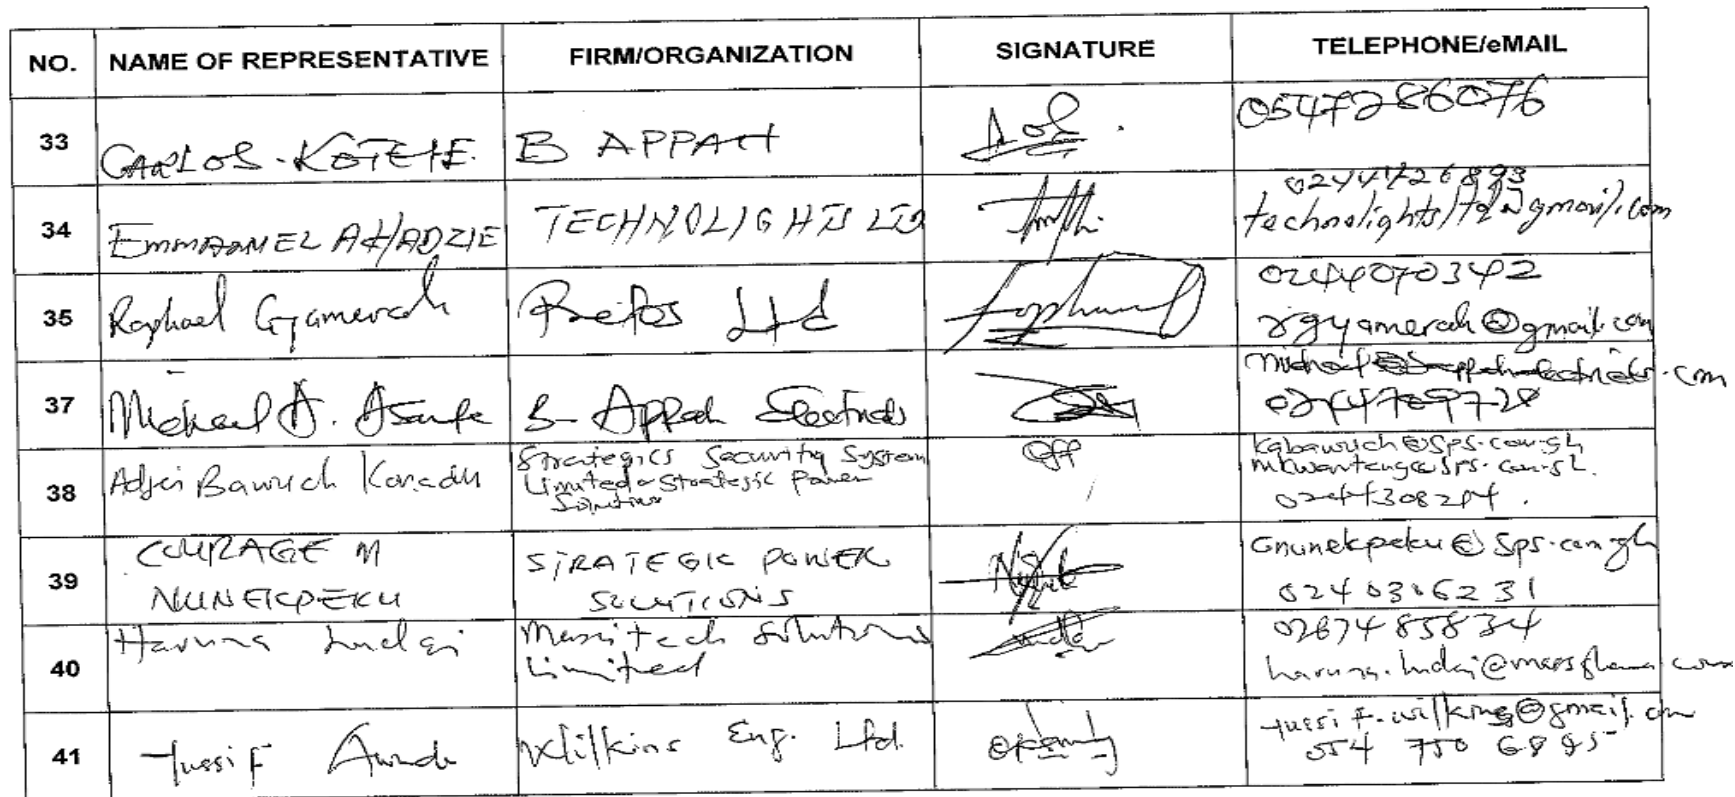 NO. NAME OF REPRESENTATIVE FIRM/ORGANIZATION SIGNATURE TELEPHONE/eMAIL
33 CARLOS. KOTEIE. B APPAH 0547286076
34 EMMANUEL AHADZIE TECHNOLIGHTS LTD 0244726893
technolightsltd@gmail.com
35 Raphael Gyamerah Ltd 0244070342
rgyamerah@gmail.com
37 Michael A. Asante B- Appah Electricals
0244709728
38 Adjei Bawuch Konadu Strategics Security System
Limited & Strategic Power
Solutions
kabawuch@sps.com.gh
mkwanteng@sps.com.gh.
0244308294.
39 COURAGE M
NUNEKPEKU
STRATEGIC POWER
SOLUTIONS
cnunekpeku@sps.com.gh
0240306231
40 Haruna Indai Messitech Solutions
Limited
0267485834
41 Yussif Wilkins Eng. Ltd. yussif.wilkins@gmail.com
054 750 6895